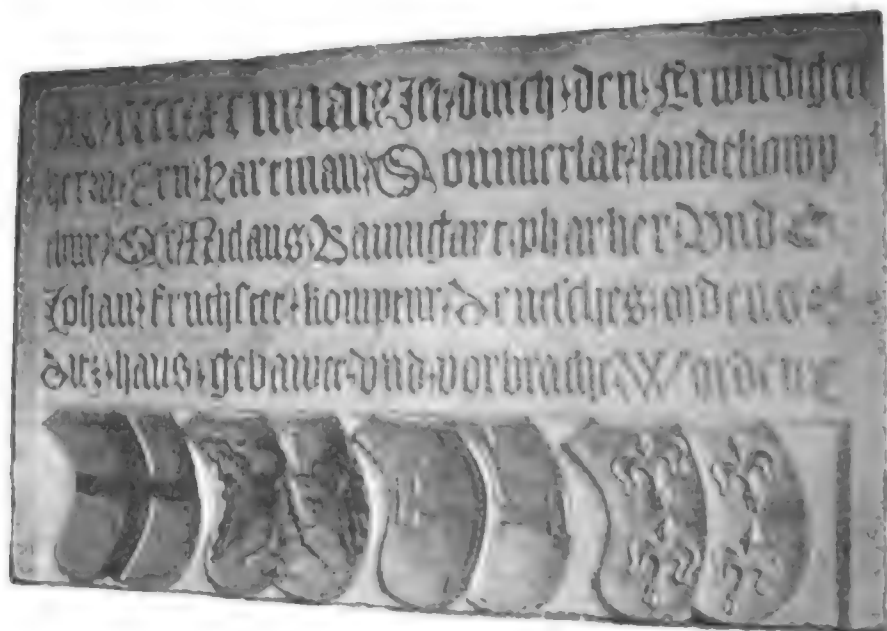 iar Ist durch den Erwirdigen
hern Ern Hartman Sommerlat landekomp
thur Er Niclaus Baumgart pharher Vnd E
Johan truchsect kompthur Deutsches ordens
ditz haus gebawet vnd vorbracht Worden